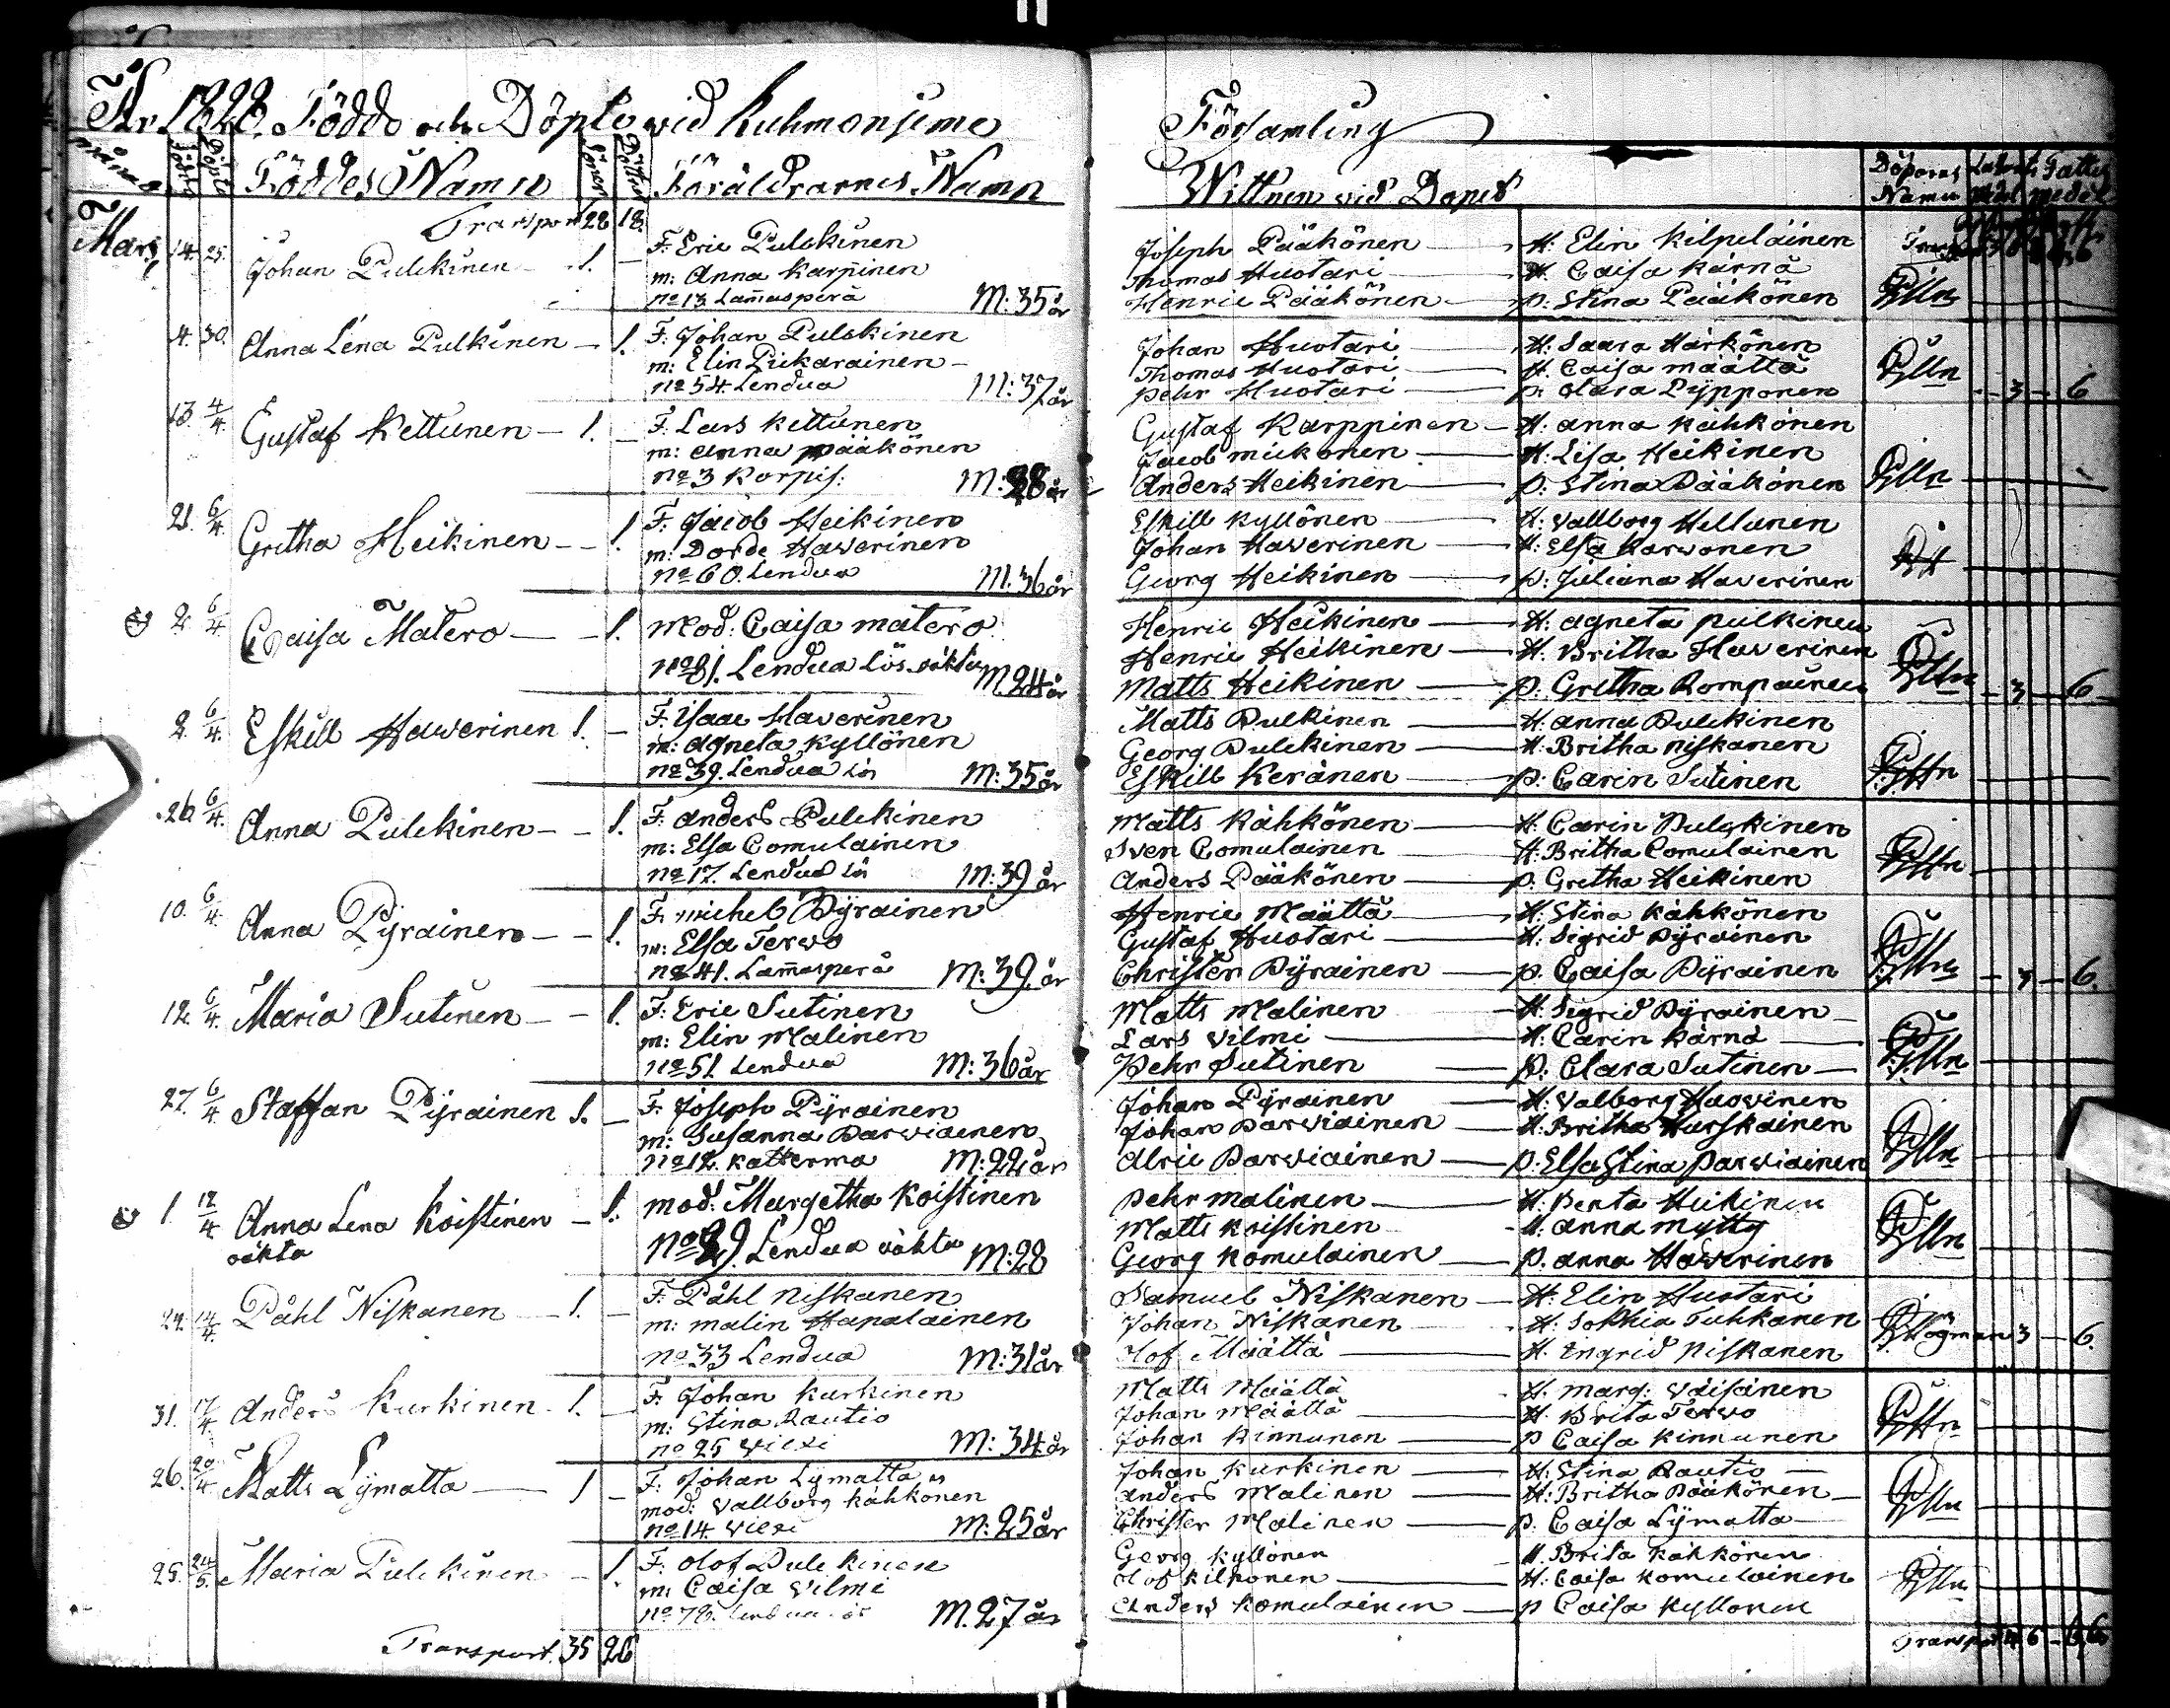 År 1828. Födde och Döpte vid Kuhmoniemi
Församling
månad
Födde
Döpte
Föddes Namn
Söner
Döttrar
Föräldrarnes Namn
Wittnen vid Dopet
Döparens Namn
Mars
Transport 28 18.
14. 25. Johan Pulckinen 1. —
F: Eric Pulckinen
m: Anna Karpinen
no 13 Lam̄asperä M: 35 år
Joseph Pääkönen — H: Elin Kilpeläinen
Thomas Huotari — H: Caisa Kärnä
Henric Pääkönen — p: Stina Pääkönen
4. 30. Anna Lena Pulkinen — 1.
F: Johan Pulckinen
m: Elin Piikarainen —
no 54. Lendua M: 37 år
Johan Huotari — H: Saara Härkönen
Thomas Huotari — H: Caisa Määttä
Pehr Huotari — p: Clara Pypponen
3 — 6
13. 4/4. Gustaf Kettunen — 1. —
F: Lars Kettunen
m: Anna Pääkönen
no 3 Korpis: M: 28 år
Gustaf Karppinen — H: Anna Kähkönen
Jacob Mickonen — H: Lisa Heikinen
Anders Heikinen — p: Stina Pääkönen
21. 6/4. Gretha Heikinen — 1.
F: Jacob Heikinen
m: Dorde Haverinen
no 60. Lendua M: 36 år
Eskill Kyllönen — H: Vallborg Hellunen
Johan Haverinen — H: Elsa Karvonen
Georg Heikinen — p: Juliana Haverinen
2. 6/4. Caisa Matero — 1.
Mod: Caisa Matero
no 81. Lendua Lös. oäkta M 24 år
Henric Heikinen — H: Agneta Pulkinen
Henric Heikinen — H: Britha Haverinen
Matts Heikinen — p: Gretha Rompainen
3 — 6
2. 6/4. Eskill Haverinen 1. —
F: Isaac Haverinen
m: Agneta Kyllönen
no 39. Lendua Lös M: 35 år
Matts Pulckinen — H: Anna Pulckinen
Georg Pulckinen — H: Britha Niskanen
Eskill Keränen — p: Carin Sutinen
26. 6/4. Anna Pulckinen — 1.
F: Anders Pulckinen
m: Elsa Comulainen
no 17. Lendua Lös M: 39 år
Matts Kähkönen — H: Carin Pulckinen
Sven Comulainen — H: Britha Comulainen
Anders Pääkönen — p: Gretha Heikinen
10. 6/4. Anna Pyrainen — 1.
F: Michel Pyrainen
m: Elsa Tervo
no 41. Lam̄asperä M: 39. år
Henric Määttä — H: Stina Kähkönen
Gustaf Huotari — H: Sigrid Pyrainen
Christer Pyrainen — p. Caisa Pyrainen
3 — 6.
12. 6/4. Maria Sutinen — 1.
F: Eric Sutinen
m: Elin Malinen
no 51. Lendua M: 36 år
Matts Malinen — H: Sigrid Pyrainen
Lars Vilmi — H: Carin Kärnä
Pehr Sutinen — p: Clara Sutinen
27. 6/4 Staffan Pyrainen 1. —
F: Joseph Pyrainen
m: Susanna Parviainen
no 12. Katterma M: 22 år
Johan Pyrainen — H: Valborg Haovinen
Johan Parviainen — H: Britha Hurskainen
Alric Parviainen — p: Elsa Stina Parviainen
1. 12/4 Anna Lena Koistinen — 1.
oäkta
mod: Margetha Koistinen
no 29. Lendua oäkta M: 28
Pehr Malinen — H: Benta Heikinen
Matts Koistinen — H: Anna Mytty
Georg Komulainen — p. Anna Haverinen
29. 14/4. Påhl Niskanen — 1. —
F: Påhl Niskanen
m: Malin Hapalainen
no 33 Lendua M: 31 år
Samuel Niskanen — H: Elin Huotari
Johan Niskanen — H: Sophia Tuhkanen
Olof Määttä — H: Ingrid Niskanen
3 — 6.
31. 17/4. Anders Kurkinen. 1. —
F: Johan Kurkinen
m: Stina Rautio
no 25 Viexi M: 34 år
Matts Määttä — H: Marg: Väisänen
Johan Määttä — H: Brita Tervo
Johan Kinnunen — p Caisa Kinnunen
26. 20/4 Matts Lymatta — 1 —
F: Johan Lymatta
mod: Vallborg Kähkonen
no 14 Viexi M: 25 år
Johan Kurkinen — H: Stina Rautio —
Anders Malinen — H: Britha Pääkönen —
Christer Malinen — p. Caisa Lymatta
25. 24/5. Maria Pulckinen — 1.
F: Olof Pulckinen
m: Caisa Vilmi
no 78. Lendua M. 27 år
Georg Kyllönen — H. Brita Kähkönen
Olof Kilponen — H: Caisa Komulainen
Anders Komulainen — p Caisa Kyllonen
Transport. 35 26
Transport